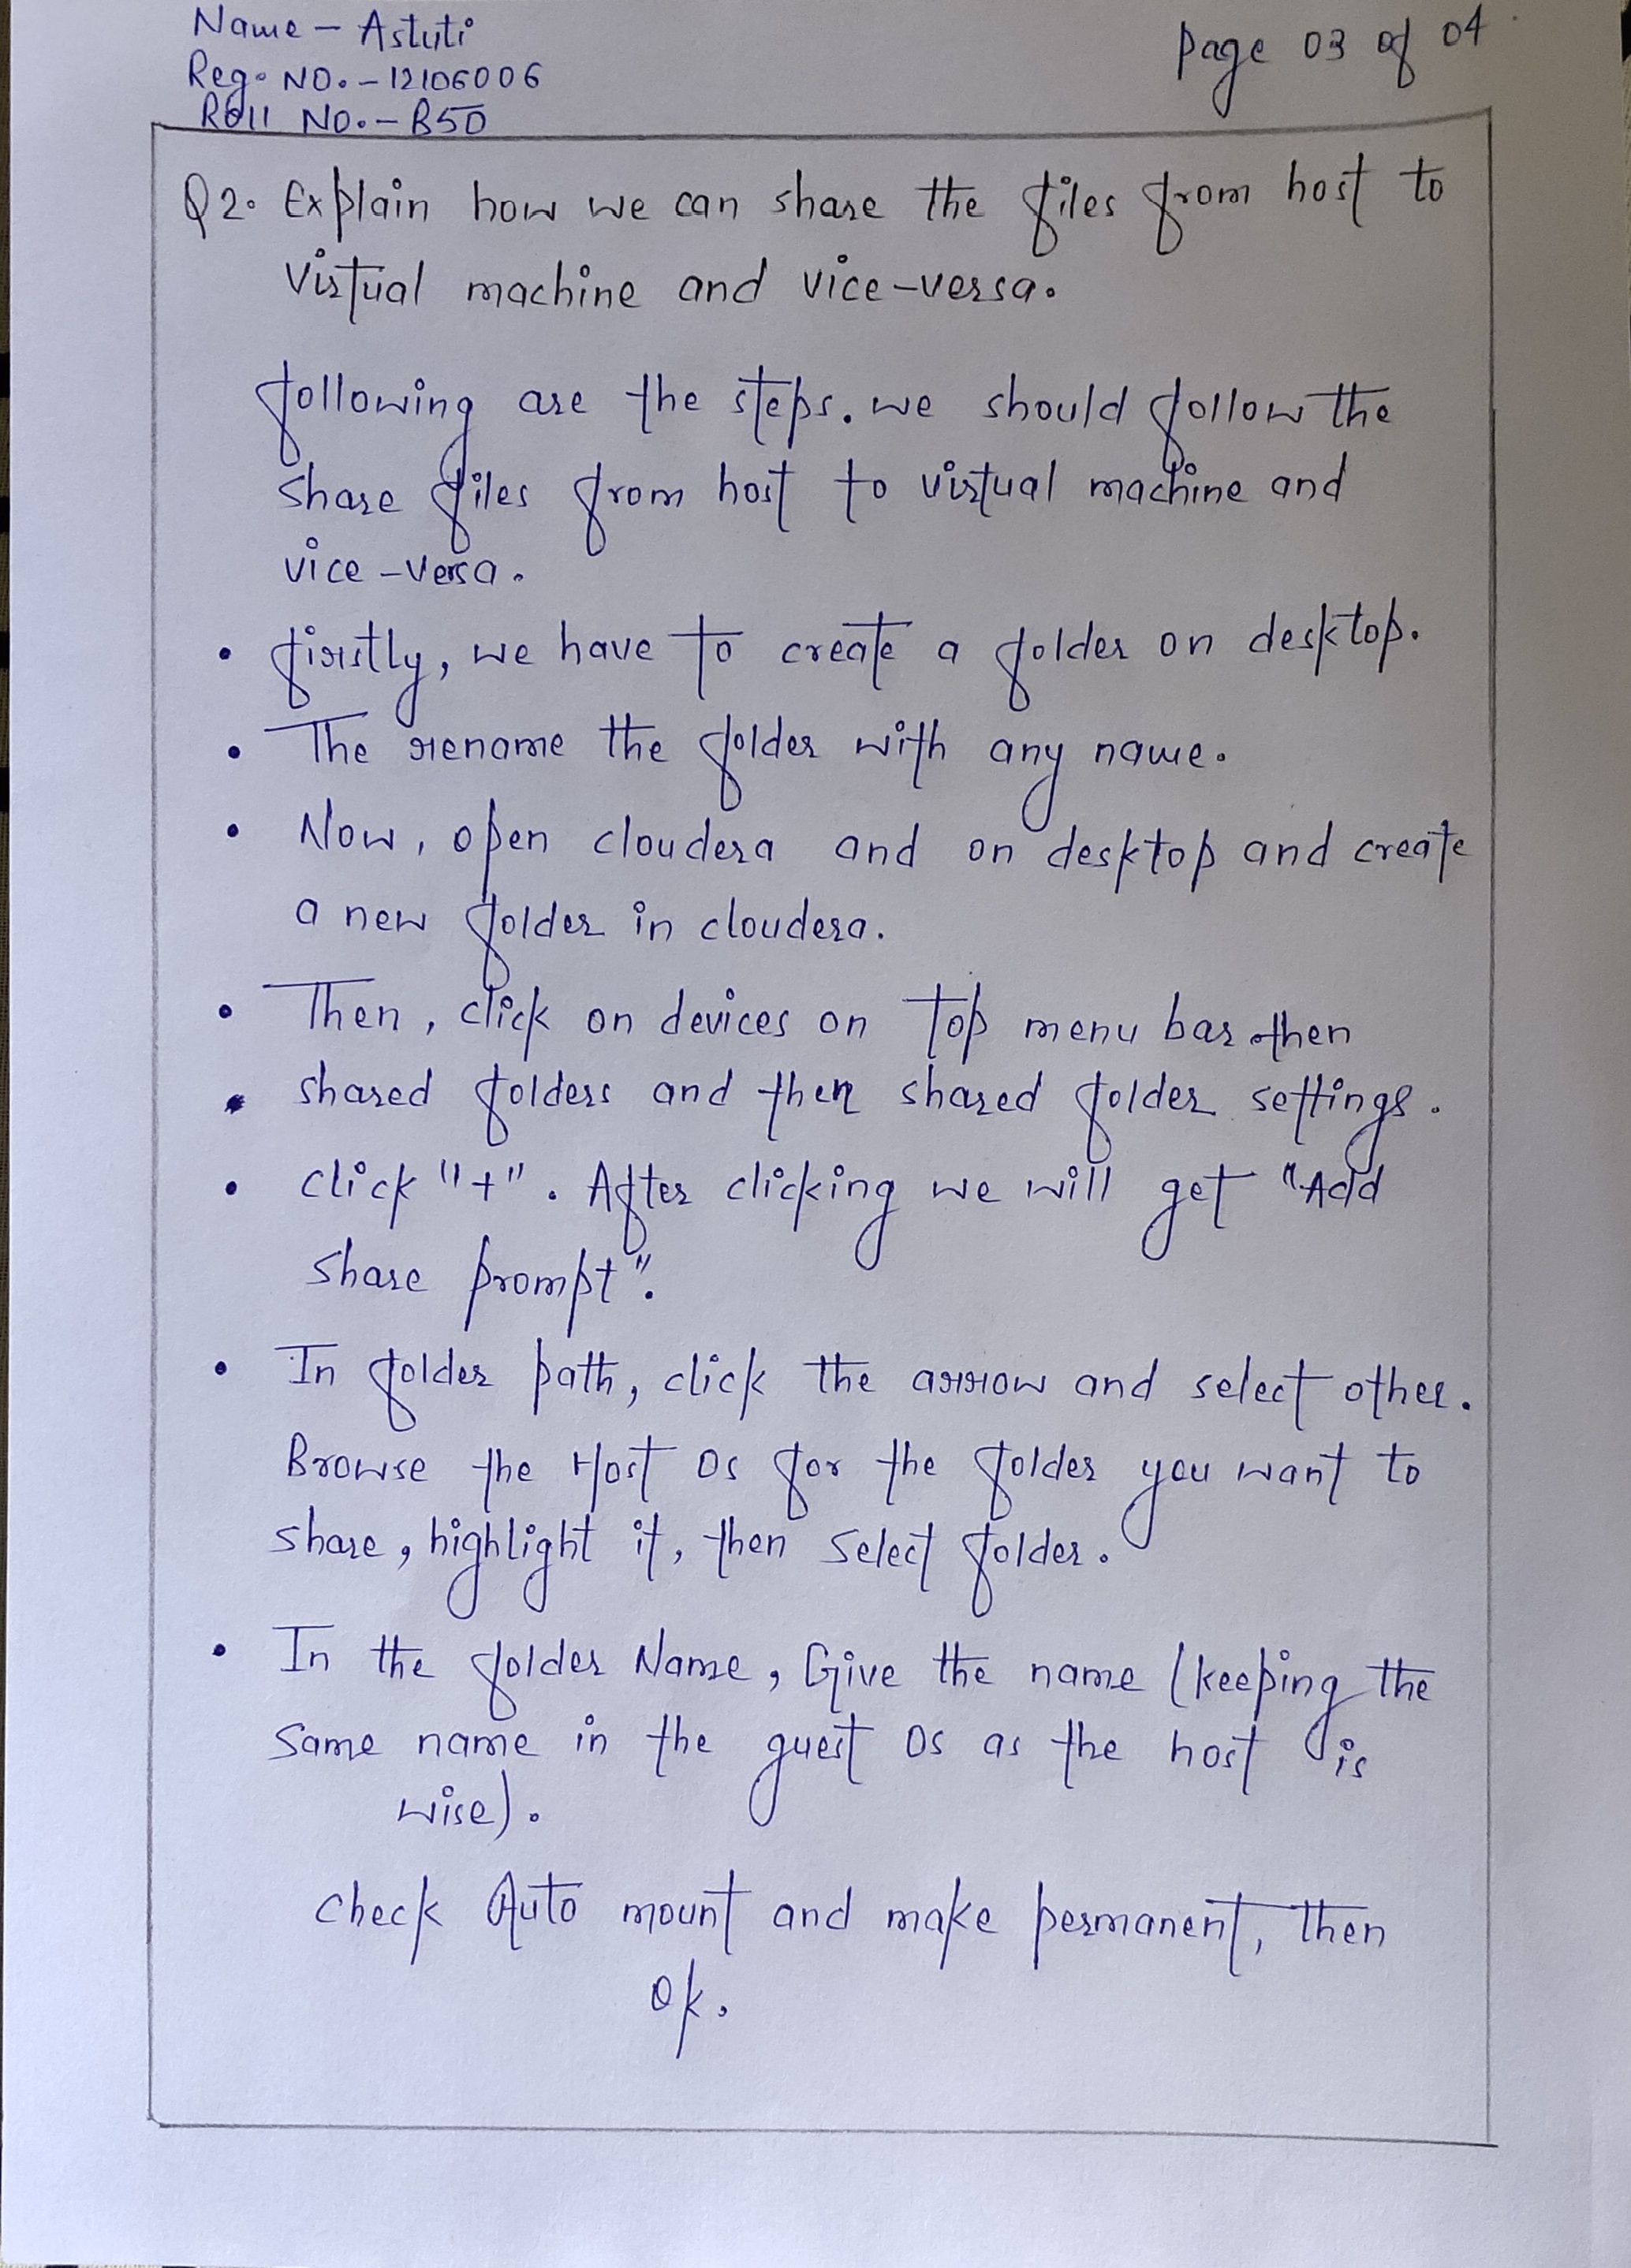 Name - Astuti
Page 03 of 04
Reg. NO. - 12106006
Roll NO. - B50
Q2. Explain how we can share the files from host to
virtual machine and vice-versa.
following are the steps. we should follow the
share files from host to virtual machine and
vice-versa.
• firstly, we have to create a folder on desktop.
• The rename the folder with any name.
• Now, open cloudera and on desktop and create
a new folder in cloudera.
• Then, click on devices on top menu bar then
• shared folders and then shared folder settings.
• click "+". After clicking we will get "Add
share prompt".
• In folder path, click the arrow and select other.
Browse the Host OS for the folder you want to
share, highlight it, then select folder.
• In the folder Name, Give the name (keeping the
same name in the guest OS as the host is
wise).
check Auto mount and make permanent, then
ok.